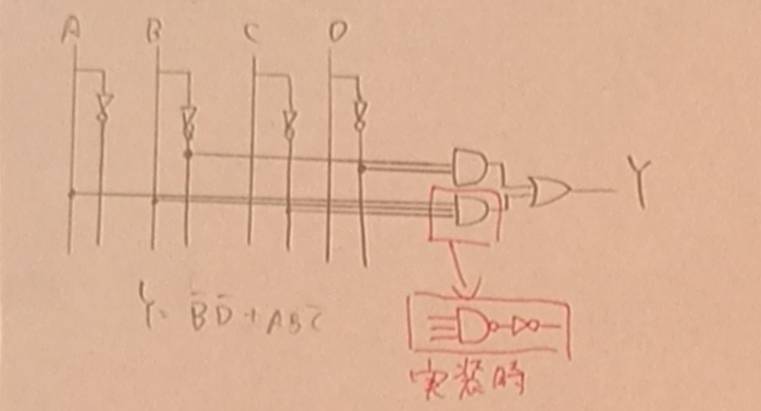 A B C D
Y
Y = B̄D̄ + ABC̄
実装時